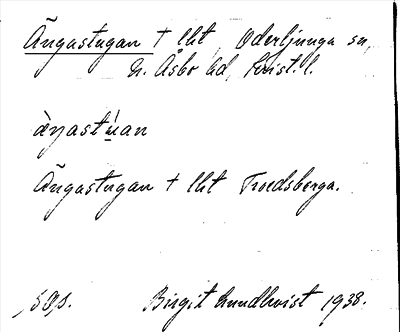 Ängastugan † lht, Oderljunga sn,
N. Åsbo hd, Krist. l.
Ängastugan † lht Troedsberga.
Birgit Lundkvist 1938.